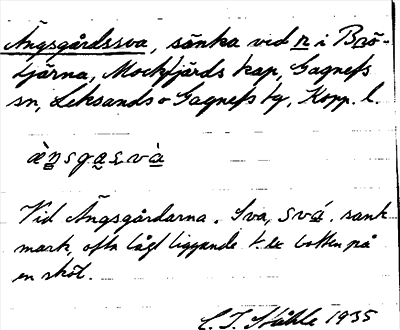 Ängsgårdssva, sänka vid n i Brö-
tjärna, Mockfjärds kap, Gagnefs
sn, Leksands o Gagnefs tg, Kopp. l.
Vid Ängsgårdarna. Sva, svá. sank
mark, ofta lågt liggande t. ex botten på
en sköt.
C. I. Ståhle 1935